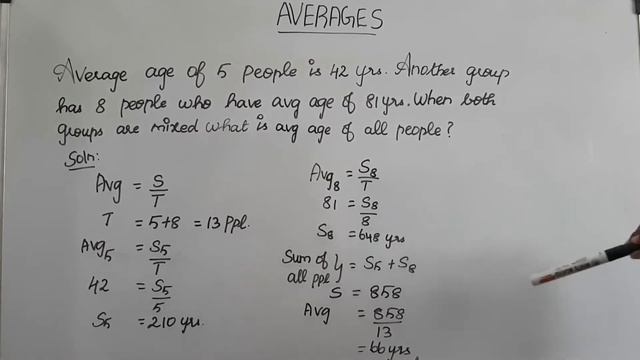 AVERAGES
Average age of 5 people is 42 yrs. Another group
has 8 people who have avg age of 81 yrs. When both
groups are mixed what is avg age of all people?
Soln:
Avg = S/T
T = 5+8 = 13 ppl.
Avg5 = S5/T
42 = S5/5
S5 = 210 yrs.
Avg8 = S8/T
81 = S8/8
S8 = 648 yrs
Sum of } = S5 + S8
all ppl
S = 858
Avg = 858/13
= 66 yrs.